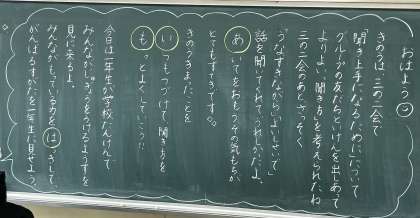 おはよう
きのうは三の二会で
聞き上手になるためにについて
グループの友だちといけんを出しあって
よりよい聞き方を考えられたね
三の二会のあとさっそく
うなずきながら
話を聞いてくれてうれしかったよ。
あいてをおもうその気もちが
とてもすてきです。
きのうきまったことを
いつもつづけて聞き方を
もっとよくしていこう!!
今日は一年生が学校たんけんで
みんながじゅぎょうをうけるようすを
見に来るよ。
みんながもっている力をはっきして
がんばるすがたを一年生に見せよう。